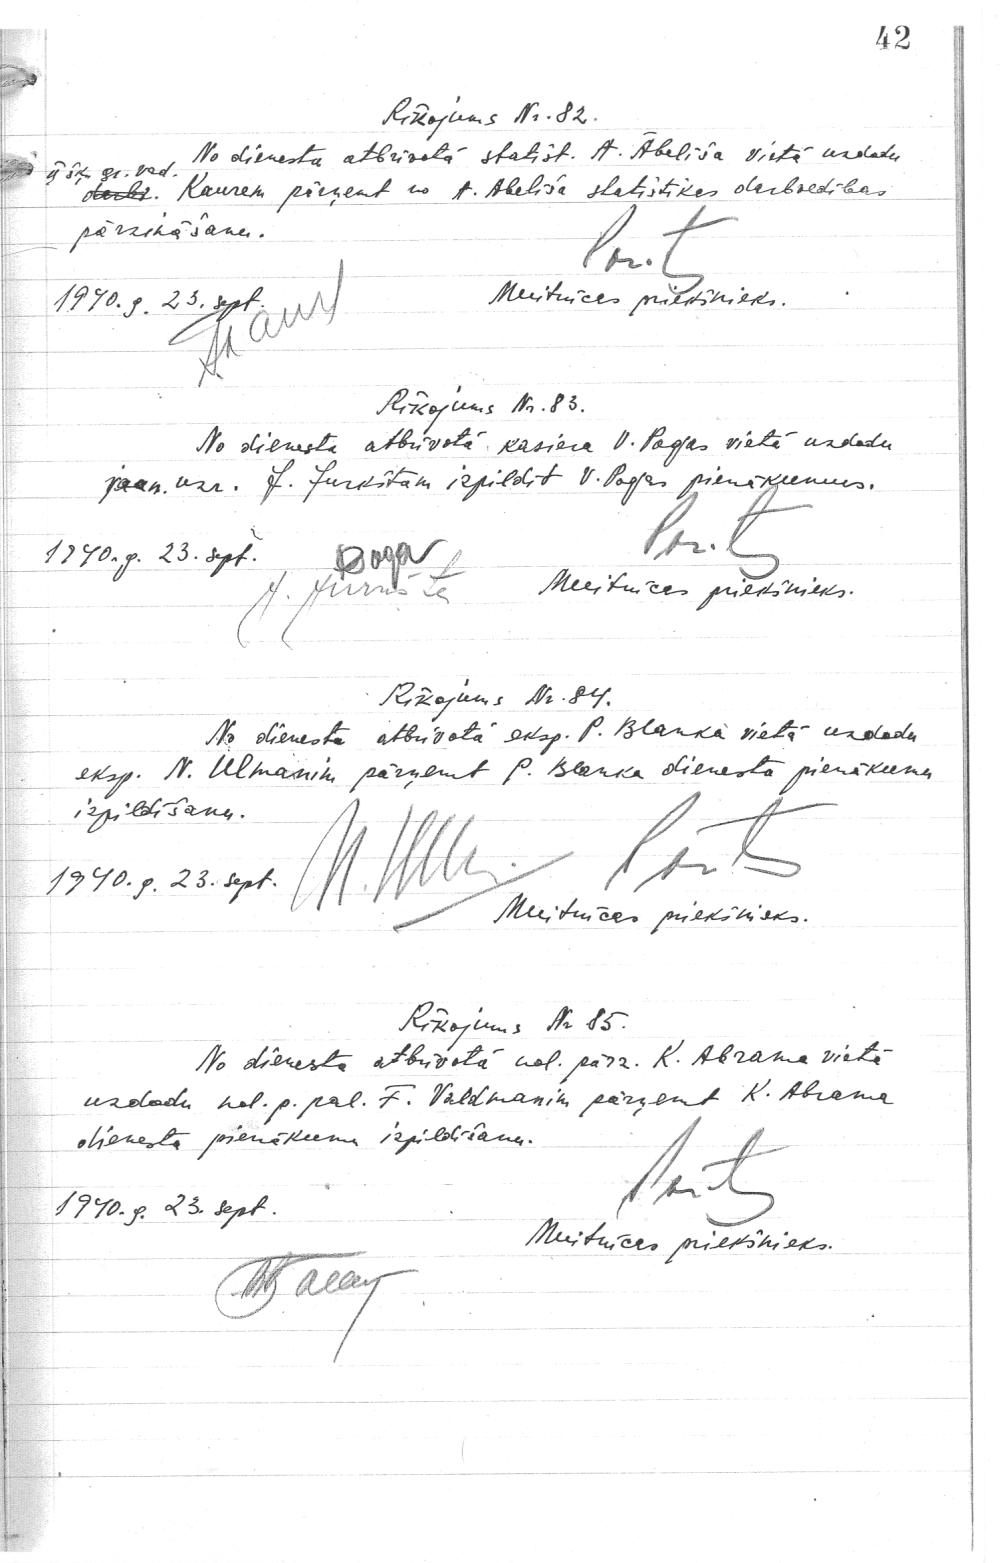 42
Rīkojums Nr. 82.
No dienesta atbrīvotā statist. A. Ābeliša vietā uzdodu
gr. vad.
darbv. Kaurem pārņemt no A. Ābeliša statistikas darbvedības
pārzināšanu.
1940. g. 23. sept.
Muitnīcas priekšnieks.
Rīkojums Nr. 83.
No dienesta atbrīvotā kasiera V. Pogas vietā uzdodu
jaun. uzr. J. Jurkštam izpildīt V. Pogas pienākumus.
1940. g. 23. sept.
Poga
Muitnīcas priekšnieks.
Rīkojums Nr. 84.
No dienesta atbrīvotā eksp. P. Blanka vietā uzdodu
eksp. N. Ulmanim pārņemt P. Blanka dienesta pienākumu
izpildīšanu.
1940. g. 23. sept.
Muitnīcas priekšnieks.
Rīkojums Nr 85.
No dienesta atbrīvotā nol. pārz. K. Abrama vietā
uzdodu nol. p. pal. F. Valdmanim pārņemt K. Abrama
dienesta pienākumu izpildīšanu.
1940. g. 23. sept.
Muitnīcas priekšnieks.